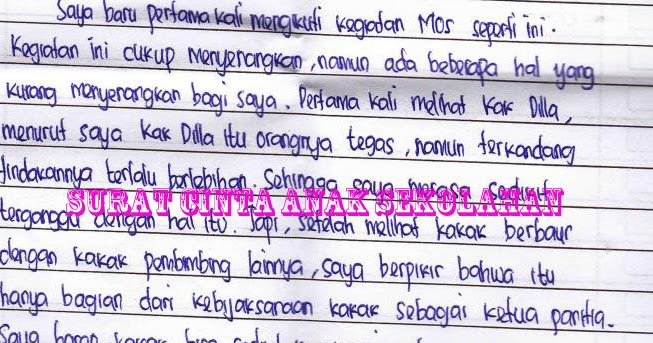 Saya baru pertama kali mengikuti kegiatan MOS seperti ini.
Kegiatan ini cukup menyenangkan, namun ada beberapa hal yang
kurang menyenangkan bagi saya. Pertama kali melihat kak Dilla,
menurut saya kak Dilla itu orangnya tegas, namun terkandang
tindakannya terlalu berlebihan. Sehingga saya merasa sedikit
SURAT CINTA ANAK SEKOLAHAN
terganggu dengan hal itu. Tapi, setelah melihat kakak berbaur
dengan kakak pembimbing lainnya, saya berpikir bahwa itu
hanya bagian dari kebijaksanaan kakak sebagai ketua panitia.
Saya